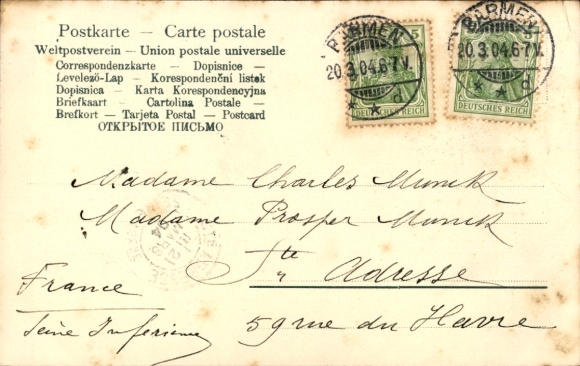 Postkarte — Carte postale
Weltpostverein — Union postale universelle
Correspondenzkarte — Dopisnice —
Levelező-Lap — Korespondenční listek
Dopisnica — Karta Korespondencyjna
Briefkaart — Cartolina Postale —
Brefkort — Tarjeta Postal — Postcard
ОТКРЫТОЕ ПИСЬМО
BARMEN
20.3.04.6-7V.
* * d
5
DEUTSCHES REICH
BARMEN
20.3.04.6-7V.
* * d
DEUTSCHES REICH
Madame Charles Munck
Madame Prosper Munck
Ste Adresse
France
Seine Inferieure
59 rue du Havre